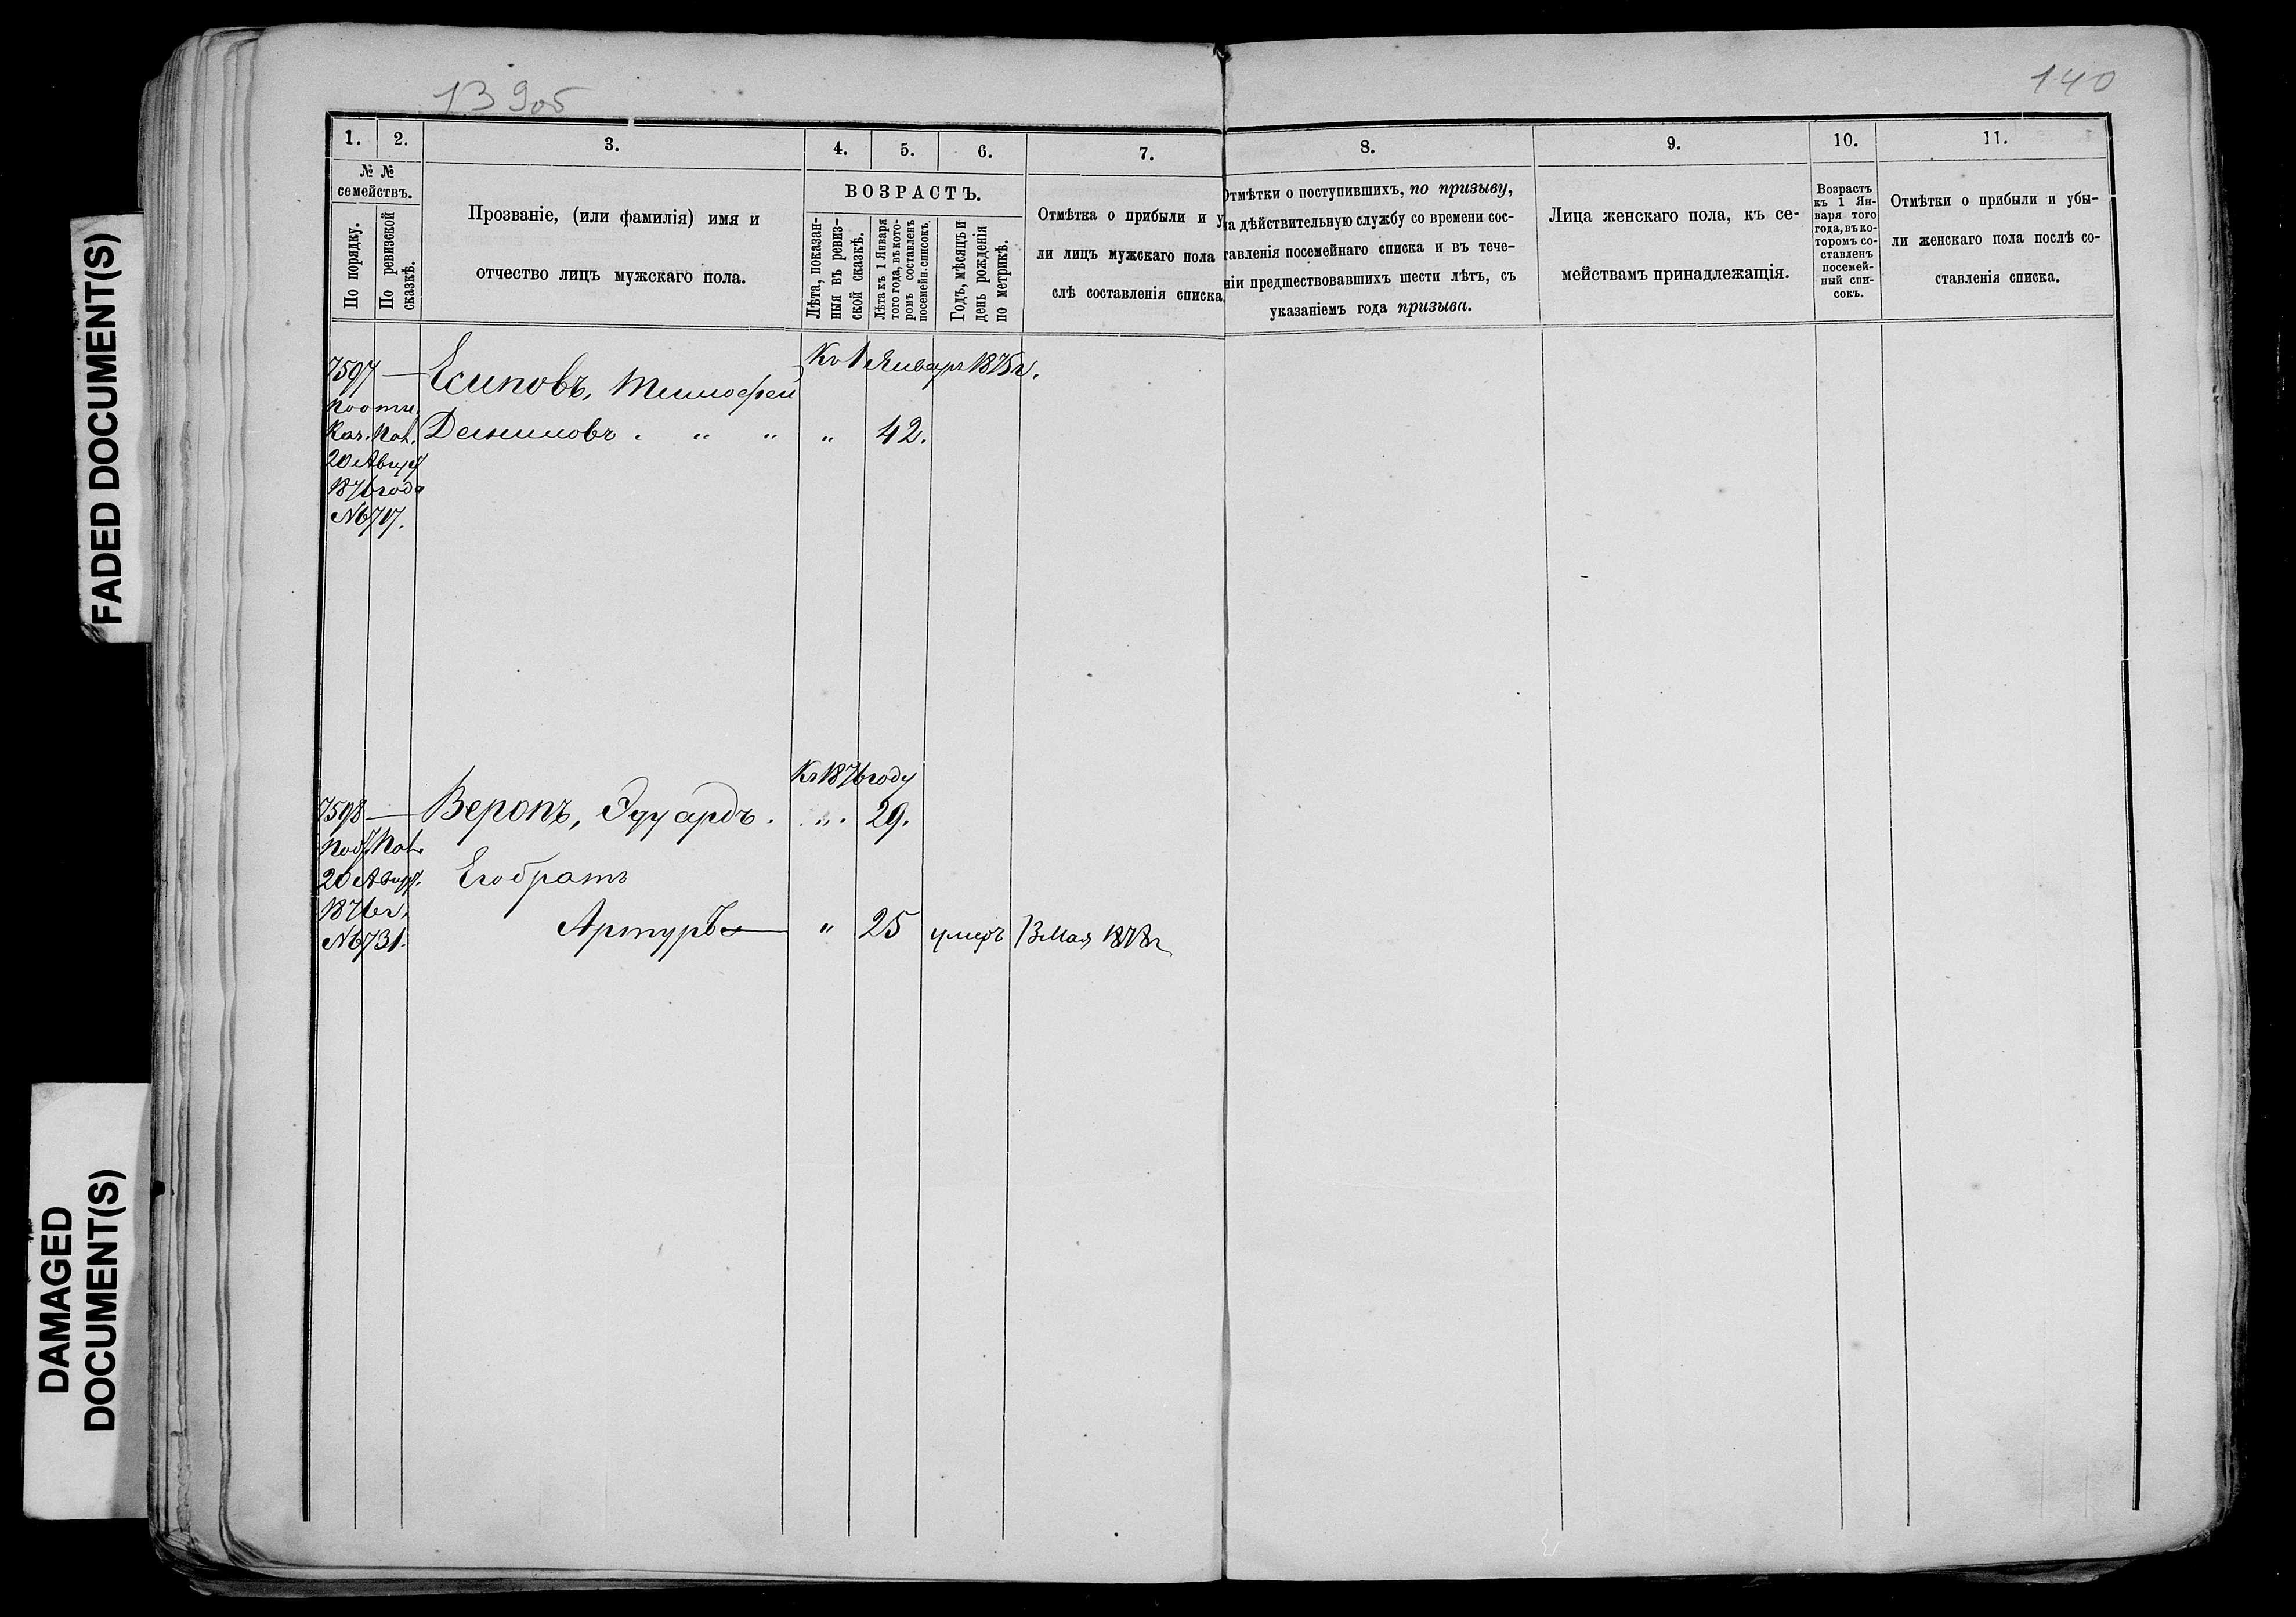 139об
140
FADED DOCUMENT(S)
DAMAGED
DOCUMENT(S)
1. 2. 3. 4. 5. 6. 7. 8. 9. 10. 11.
№ №
семействъ.
По порядку.
По ревизской
сказкѣ.
Прозваніе, (или фамилія) имя и
отчество лицъ мужскаго пола.
ВОЗРАСТЪ.
Лѣта, показан-
ныя въ ревиз-
ской сказкѣ.
Лѣта къ 1 Января
того года, въ кото-
ромъ составленъ
посемейн. списокъ.
Годъ, мѣсяцъ и
день рожденія
по метрикѣ.
Отмѣтка о прибыли и у
ли лицъ мужскаго пола
слѣ составленія списка
Отмѣтки о поступившихъ, по призыву,
на дѣйствительную службу со времени сос-
тавленія посемейнаго списка и въ тече-
ніи предшествовавшихъ шести лѣтъ, съ
указаніемъ года призыва.
Лица женскаго пола, къ се-
мействамъ принадлежащія.
Возрастъ
къ 1 Ян-
варя того
года, въ ко-
торомъ со-
ставленъ
посемей-
ный спи-
сокъ.
Отмѣтки о прибыли и убы-
ли женскаго пола послѣ со-
ставленія списка.
Къ 1 Января 1875 г.
7597 — Есиповъ, Тимофей
Демимовъ . " " " 42.
20 Авгус
1876 года
№ 717.
Къ 1876 году
7598 — Веропъ, Эдуардъ . " . 29.
20 Авгус. Его братъ
1876 г.
№ 731. Артуръ — " 25 умеръ 13 Мая 1878 г